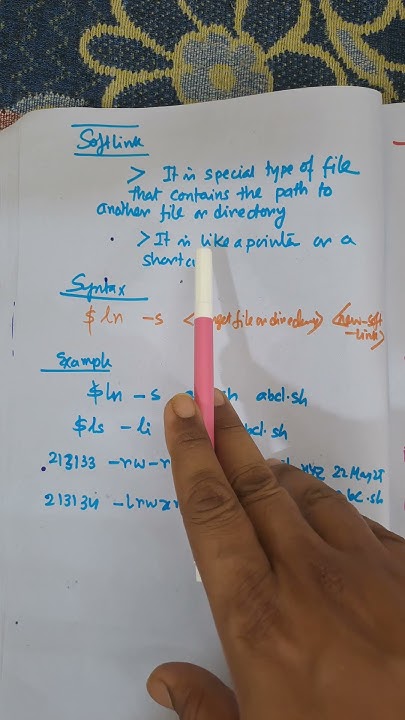 Softlink
> It is special type of file
that contains the path to
another file or directory
> It is like a pointer or a
Syntax
$ ln -s file or directory> <new-soft
-link>
Example
$ ln -s abcl.sh
$ ls -li
213133 -rw-r 22 May 25
213134 -lrwxr abc.sh